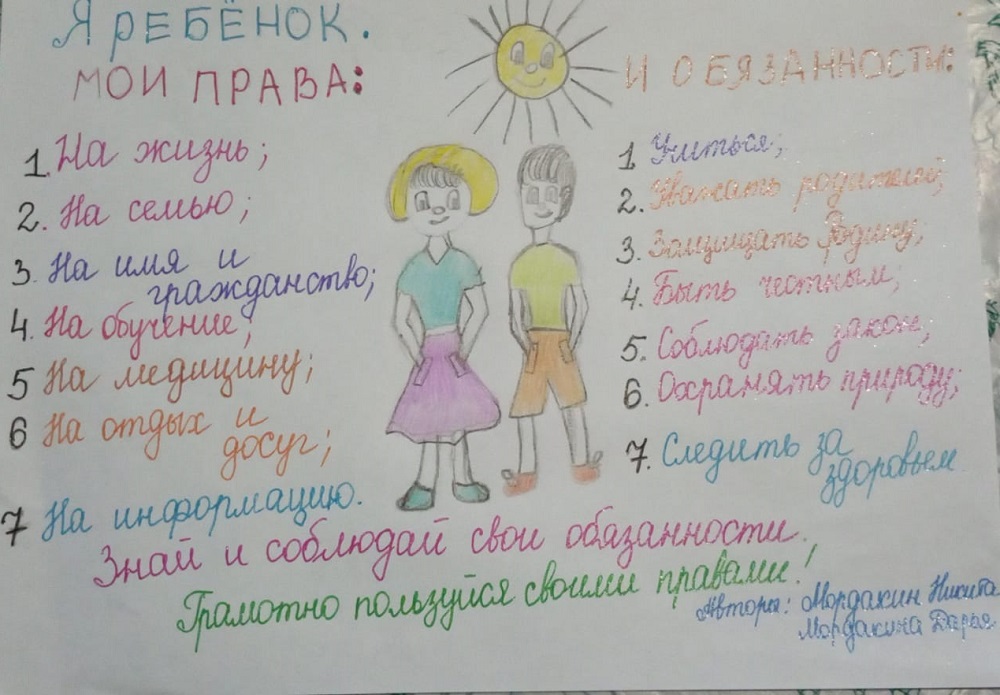 Я РЕБЁНОК.
МОИ ПРАВА:
1. На жизнь;
2. На семью;
3. На имя и
гражданство;
4. На обучение;
5 На медицину;
6 На отдых и
досуг;
7 На информацию.
И ОБЯЗАННОСТИ:
1 Учиться;
2. Уважать родителей;
3. Защищать Родину;
4. Быть честным;
5. Соблюдать закон;
6. Охранять природу;
7. Следить за
здоровьем
Знай и соблюдай свои обязанности.
Грамотно пользуйся своими правами!
Авторы: Мордакин Никита
Мордакина Дарья